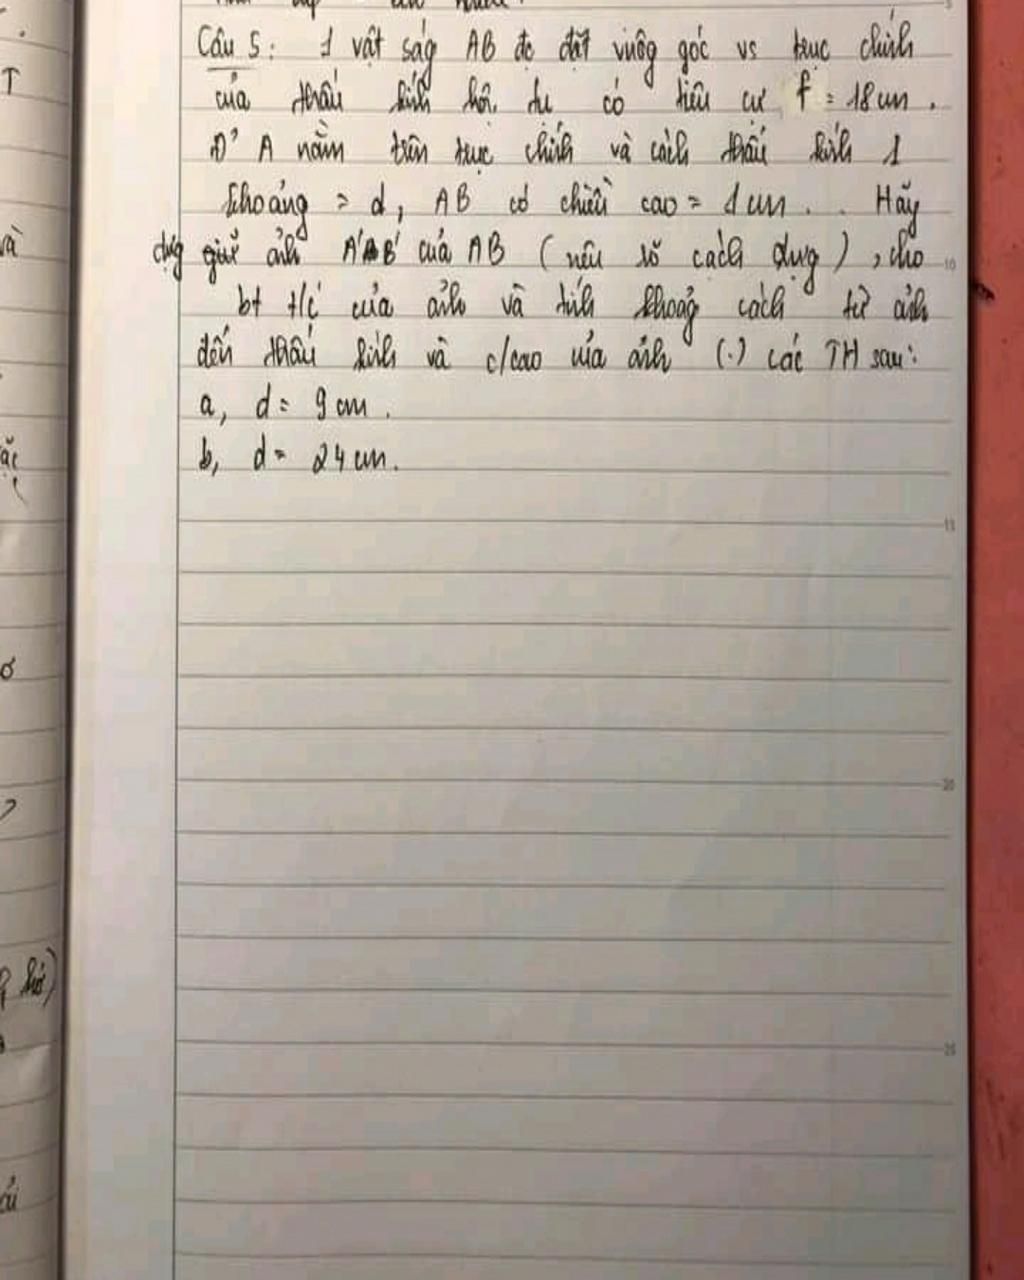 Câu 5: 1 vật ság AB đc đặt vuôg góc vs trục chính
của thấu kính hội tụ có tiêu cự f = 18 cm.
Đ' A nằm trên trục chính và cách thấu kính 1
khoảng = d, AB có chiều cao = 1 cm. . Hãy
dựg ảnh A'B' của AB (nêu rõ cách dựg), cho
bt t/c của ảnh và tính khoảg cách từ ảnh
đến thấu kính và c/cao của ảnh (.) các TH sau:
a, d = 9 cm.
b, d = 24 cm.